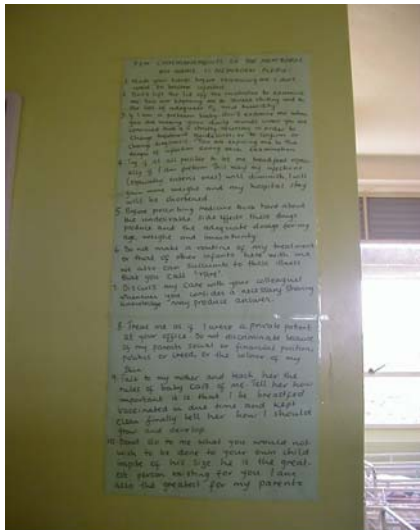 TEN COMMANDMENTS OF THE NEWBORNS
MY NAME IS NEWBORN PLEASE:
1. Wash your hands before examining me I dont
want to become infected
2. Dont lift the lid off the incubator to examine
me You are exposing me to
the loss of adequate O2 and humidity
3. If I am a preterm baby dont examine me when
you are making your daily rounds unless you are
convinced that it is strictly necessary in order to
change treatment
change treatment. You are exposing me to the
danger of infection during each examination
4. Try if at all possible to let me breastfeed
ally if I am preterm This way my infections
(especially enteric ones) will diminish I will
gain more weight and my hospital stay
will be shortened
5. Before prescribing medicine think hard about
the undesirable side effects these drugs
produce and the adequate dosage for my
age, weight and immaturity
6. Do not make a routine of my treatment
or that of other infants here with me
we also can succumb to these illness
that you call "virus"
7. Discuss my care with your colleagues
whenever you consider it necessary sharing
knowledge may produce answer.
8. Treat me as if I were a private patient
at your office. Do not discriminate because
of my parents social or financial position,
political or creed, or the colour of my
skin
9. Talk to my mother and teach her the
rules of baby care of me. Tell her how
important it is that I be breastfed
vaccinated in due time and kept
clean finally tell her how I should
grow and develop.
10. Dont do to me what you would not
wish to be done to your own child
inspite of his size he is the great-
est person existing for you. I am
also the greatest for my parents